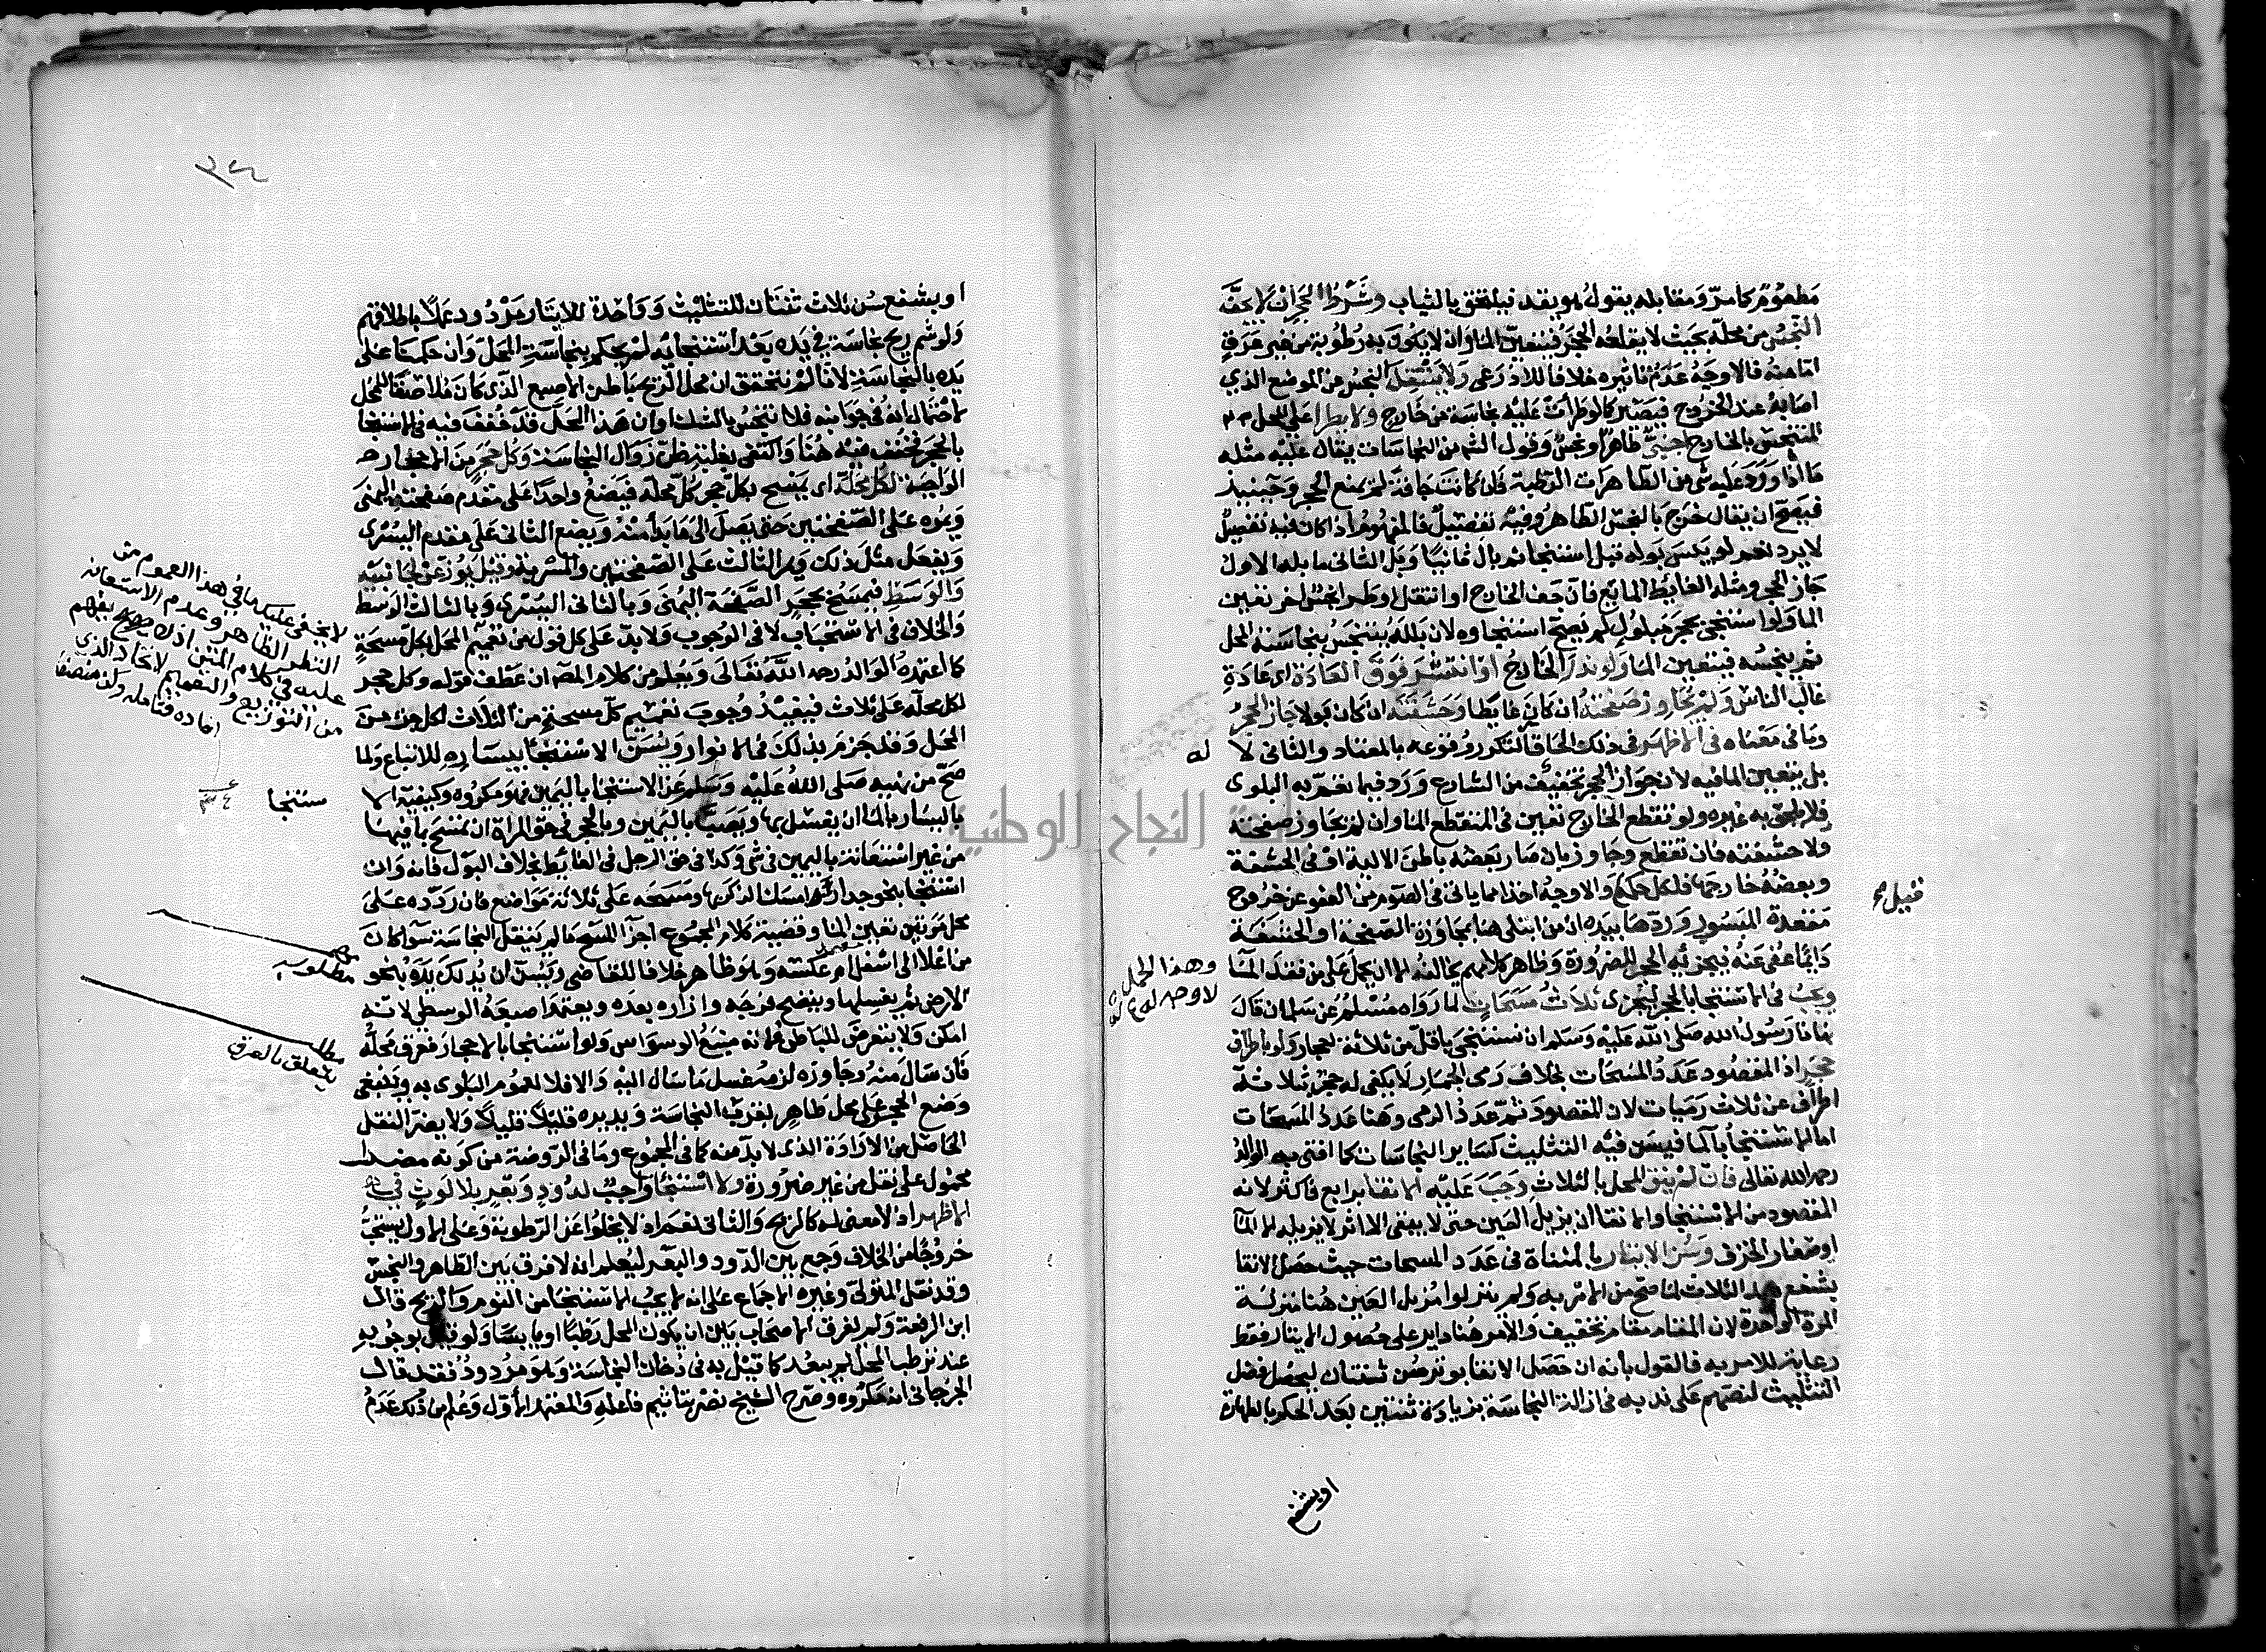 مطعوم كما مر ومقابله يقول هو يقد فيلتحق بالثياب وشرط الحجر ان لا يجف
النجس من محله بحيث لا يقلعه الحجر فيتعين الماء وان لا يكون به رطوبة من غير عرق
اما منه فالاوجه عدم تاثيره خلافا للاذرعي ولا ينتقل النجس من الموضع الذي
اصابه عند الخروج فيصير كما لو طرأت عليه نجاسة من خارج ولا يطرا على المحل
المتنجس بالخارج اجنبي طاهرا ونجس وقول الشرمن النجاسات يقال عليه مثله
ما اذا ورد عليه شي من الطاهرات الرطبة فان كانت جافة لم يمنع الحجر وحينيذ
فيصح ان يقال خرج بالنجس الطاهر وفيه تفصيل فالمفهوم اذا كان فيه تفصيل
لا يرد نعم لو يبس بوله قبل استنجائه ثم بال ثانيا وبل الثاني ما بله الاول
جاز الحجر ومثله الغايط المايع فان جف الخارج او انتقل او طرا نجس اخر تعين
الماء ولو استنجى بحجر مبلول لم يصح استنجاوه لان بلله يتنجس بنجاسة المحل
ثم ينجسه فيتعين الماء ولو ندر الخارج او انتشر فوق العادة اي عادة
غالب الناس ولم يجاوز صفحته ان كان غايطا وحشفته ان كان بولا جاز الحجر
وما في معناه في الاظهر في ذلك الحاقا لتكرر وقوعه بالمعتاد والثاني لا له
بل يتعين الما فيه لان جواز الحجر تخفيف من الشارع ورد فيما تعم به البلوى
فلا يلحق به غيره ولو تقطع الخارج تعين في المتقطع الماء وان لم يجاوز صفحته
ولا حشفته فان تقطع وجاوز بان صار بعضه باطن الالية او في الحشفة
وبعضه خارجها فلكل حكمه والاوجه اخذا مما ياتي في الصوم من العفو عن خروج
مقعدة المبسور وردها بيده ان من ابتلي هنا بمجاوزة الصفحة او الحشفة
دايما عفى عنه فيجزئه الحجر للضرورة وظاهر كلامهم يخالفه الا ان يحمل على من فقد الماء
ويجب في الاستنجا بالحجر ليجزي ثلاث مسحات لما رواه مسلم عن سلمان قال
نهانا رسول الله صلى الله عليه وسلم ان نستنجي باقل من ثلاثة احجار ولو باطراف
حجر اذ المقصود عدد المسحات بخلاف رمي الجمار لا يكفي له حجر بثلاثة
اطراف عن ثلاث رميات لان المقصود ثم عدد الرمي وهنا عدد المسحات
اما الاستنجا بالما فيسن فيه التثليث كساير النجاسات كما افتى به الوالد
رحمه الله تعالى فان لم ينق المحل بالثلاث وجب عليه الانقا برابع فاكثر لانه
المقصود من الاستنجا والانقا ان يزيل العين حتى لا يبقى الا اثر لا يزيله الا الما
او صغار الخزف وسن الايتار بالمثناة في عدد المسحات حيث حصل الانقا
بشفع بعد الثلاث لما صح من الامر به ولم ينزلوا مزيل العين هنا منزلة
المرة الواحدة لان المقام مقام تخفيف والامر هنا داير على حصول الايتار فقط
رعاية للامر به فالقول بانه ان حصل الانقا بوتر سن ثنتان ليحصل فضل
التثليث لنصهم على ندبه في ازالة النجاسة بزيادة ثنتين بعد الحكم بالطهارة
قبيل
وهذا الحمل
لا وجه له
او بشفع
او بشفع سن ثلاث ثنتان للتثليث وواحدة للايتار مردود عملا باطلاقهم
ولو شم ريح نجاسة في يده بعد استنجائه لم يحكم بنجاسة المحل وان حكمنا على
يده بالنجاسة لانا لم نتحقق ان محل الريح باطن الاصبع الذي كان ملاصقا للمحل
لاحتمال انه في جوانبه فلا تنجس بالشك او ان هذا المحل قد خفف فيه في الاستنجا
بالحجر فخفف فيه هنا واكتفى بغلبة ظن زوال النجاسة وكل حجر من الاحجار
الواجبة لكل محله اي يمسح بكل حجر كل محله فيضع واحدا على مقدم صفحته اليمنى
ويمره على الصفحتين حتى يصل الى ما بدأ منه ويضع الثاني على مقدم اليسرى
ويفعل مثل ذلك ويمر الثالث على الصفحتين والمسربة وقيل يوزعن لجانبيه
والوسط فيمسح بحجر الصفحة اليمنى وبالثاني اليسرى وبالثالث الوسط
والخلاف في الاستحباب لا في الوجوب ولا بد على كل قول من تعميم المحل بكل مسحة
كما اعتمده الوالد رحمه الله تعالى ويعلم من كلام المص ان عطف قوله وكل حجر
لكل محله على ثلاث فيفيد وجوب تعميم كل مسحة من الثلاث لكل جزء من
المحل وقد جزم بذلك في الانوار ويسن الاستنجا بيساره للاتباع ولما
صح من نهيه صلى الله عليه وسلم عن الاستنجا باليمين فهو مكروه وكيفية الا
باليسار بالما ان يغسل بها ويصب باليمين وبالحجر في حق المراة ان يمسح بما فيها
من غير استعانة باليمين في شي وكذا في حق الرجل في الغايط بخلاف البول فانه وان
استنجا بنحو جدار امسك الذكر بها ومسحه على ثلاثة مواضع فان ردده على
محل مرتين تعين الما وقضية كلام المجموع اجزا المسح ما لم ينقل النجاسة سوا كان
من اعلا الى اسفل ام عكسه وهو ظاهر خلافا للقاضي ويسن ان يدلك يده بنحو
الارض ثم يغسلها وينضح فرجه وازاره بعده ويعتمد اصبعه الوسطى لانه
امكن ولا يتعرض للباطن فانه منبع الوسواس ولو استنجا بالاحجار فعرق محله
فان سال منه وجاوزه لزمه غسل ما سال اليه والا فلا لعموم البلوى به وينبغي
وضع الحجر على محل طاهر بقرب النجاسة ويديره قليلا قليلا ولا يضر النقل
الحاصل من الادارة الذي لا بد منه كما في المجموع وما في الروضة من كونه مضرا
محمول على نقل من غير ضرورة ولا استنجا واجب لدود وبعر بلا لوث في
الاظهر اذ لا معنى له كالريح والثاني نعم اذ لا يخلوا عن الرطوبة وعلى الاول يستحب
خروجا من الخلاف وجمع بين الدود والبعر ليعلم انه لا فرق بين الطاهر والنجس
وقد نقل المتولي وغيره الاجماع على انه لا يجب الاستنجا من النوم والريح قال
ابن الرفعة ولم يفرق الاصحاب بين ان يكون المحل رطبا او يابسا ولو قيل بوجوبه
عند ترطب المحل لم يبعد كما قيل به في دخان النجاسة وهو مردود فقد قال
الجرجاني انه مكروه وصرح الشيخ نصر بتأثيم فاعله والمعتمد الاول وعلم من ذلك عدم
لا يخفى عليك ما في هذا العموم من
النظر الظاهر وعدم الاستعانه
عليه في كلام المتن اذ كل صحيح يفهم
من التوزيع والتعميم لاتحاد الذي
افاده فتامله وكن منصفا
ستنجا
مهم
مطلوب
مطلب
يتعلق بالعرق
جامعة النجاح الوطنية